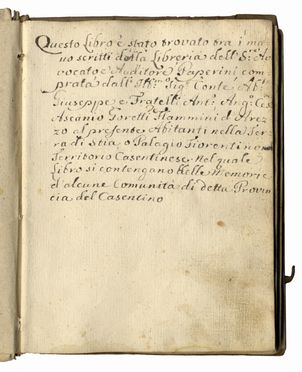 Questo Libro è stato trovato tra i ma
noscritti della Libreria dell Sr. Av
vocato e Auditore Paperini com
prata dall' Sigr. Conte
Giuseppe, e Fratelli
Ascanio Goretti Flammini d'Arez
zo al presente Abitanti nella Ter
ra di Stia o Palagio Fiorentino
Territorio Casentinese. Nel quale
Libro si contengano belle Memorie
d'alcune Comunità di detta Provin
cia del Casentino